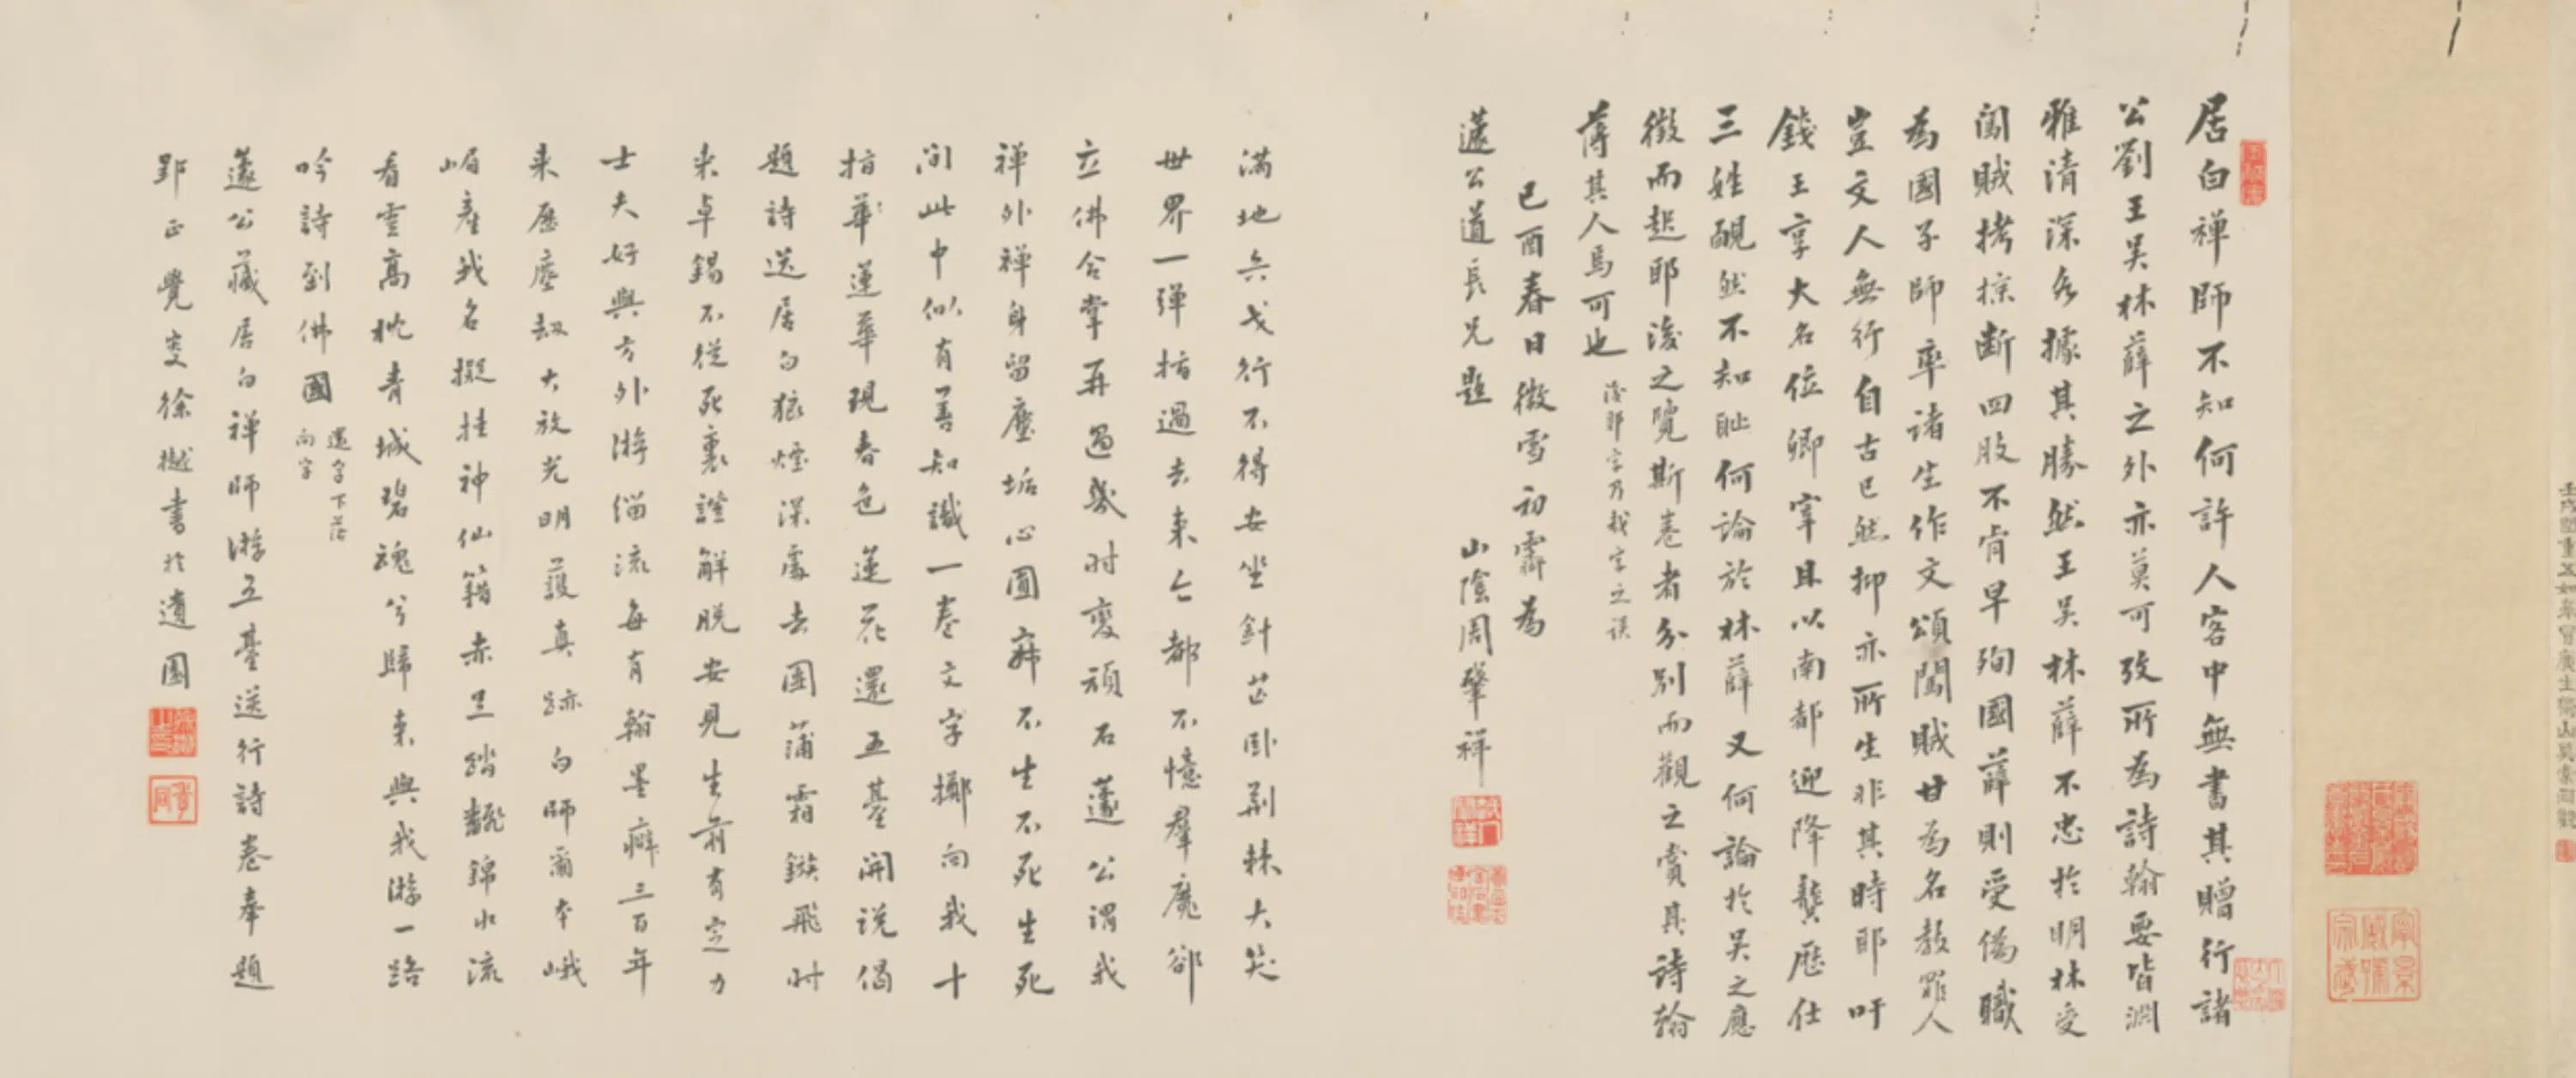 居白禪師不知何許人客中無書其贈行諸
公劉王吴林薛之外亦莫可攷所為詩翰要皆淵
雅清深各據其勝然王吴林薛不忠於明林受
闖賊拷掠斷四股不肯早殉國薛則受偽職
為國子師率諸生作文頌闖賊甘為名教罪人
豈文人無行自古已然抑亦所生非其時耶吁
錢王享大名位卿宰且以南都迎降龔歷仕
三姓靦然不知耻何論於林薛又何論於吴之應
徵而起耶後之覽斯卷者分别而觀之賞其詩翰
薄其人焉可也
後耶字乃我字之誤
已酉春日微雪初霽為
蘧公道長兄題
山陰周肇祥
滿地兵戈行不得安坐針芒卧荆棘大笑
世界一弹指過去来今都不憶羣魔卻
立佛合掌再過幾时變頑石蘧公谓我
禅外禅身留塵垢心圓寂不生不死生死
间此中似有善知識一卷文字擲向我十
指華蓮華現春色蓮花還五臺開说偈
題詩送居白狼煙深處去圍蒲霜鏃飛时
来卓錫不從死裏證解脱安見生前有定力
士夫好與方外游缁流每有翰墨癖三百年
来歷塵劫大放光明護真跡白師爾本峨
嵋産我名擬挂神仙籍赤足踏翻錦水流
看雲高枕青城碧魂兮歸来與我游一路
吟詩到佛國
還字下落
向字
蘧公藏居白禅師游五臺送行詩卷奉題
郢正覺叟徐樾書於遺園